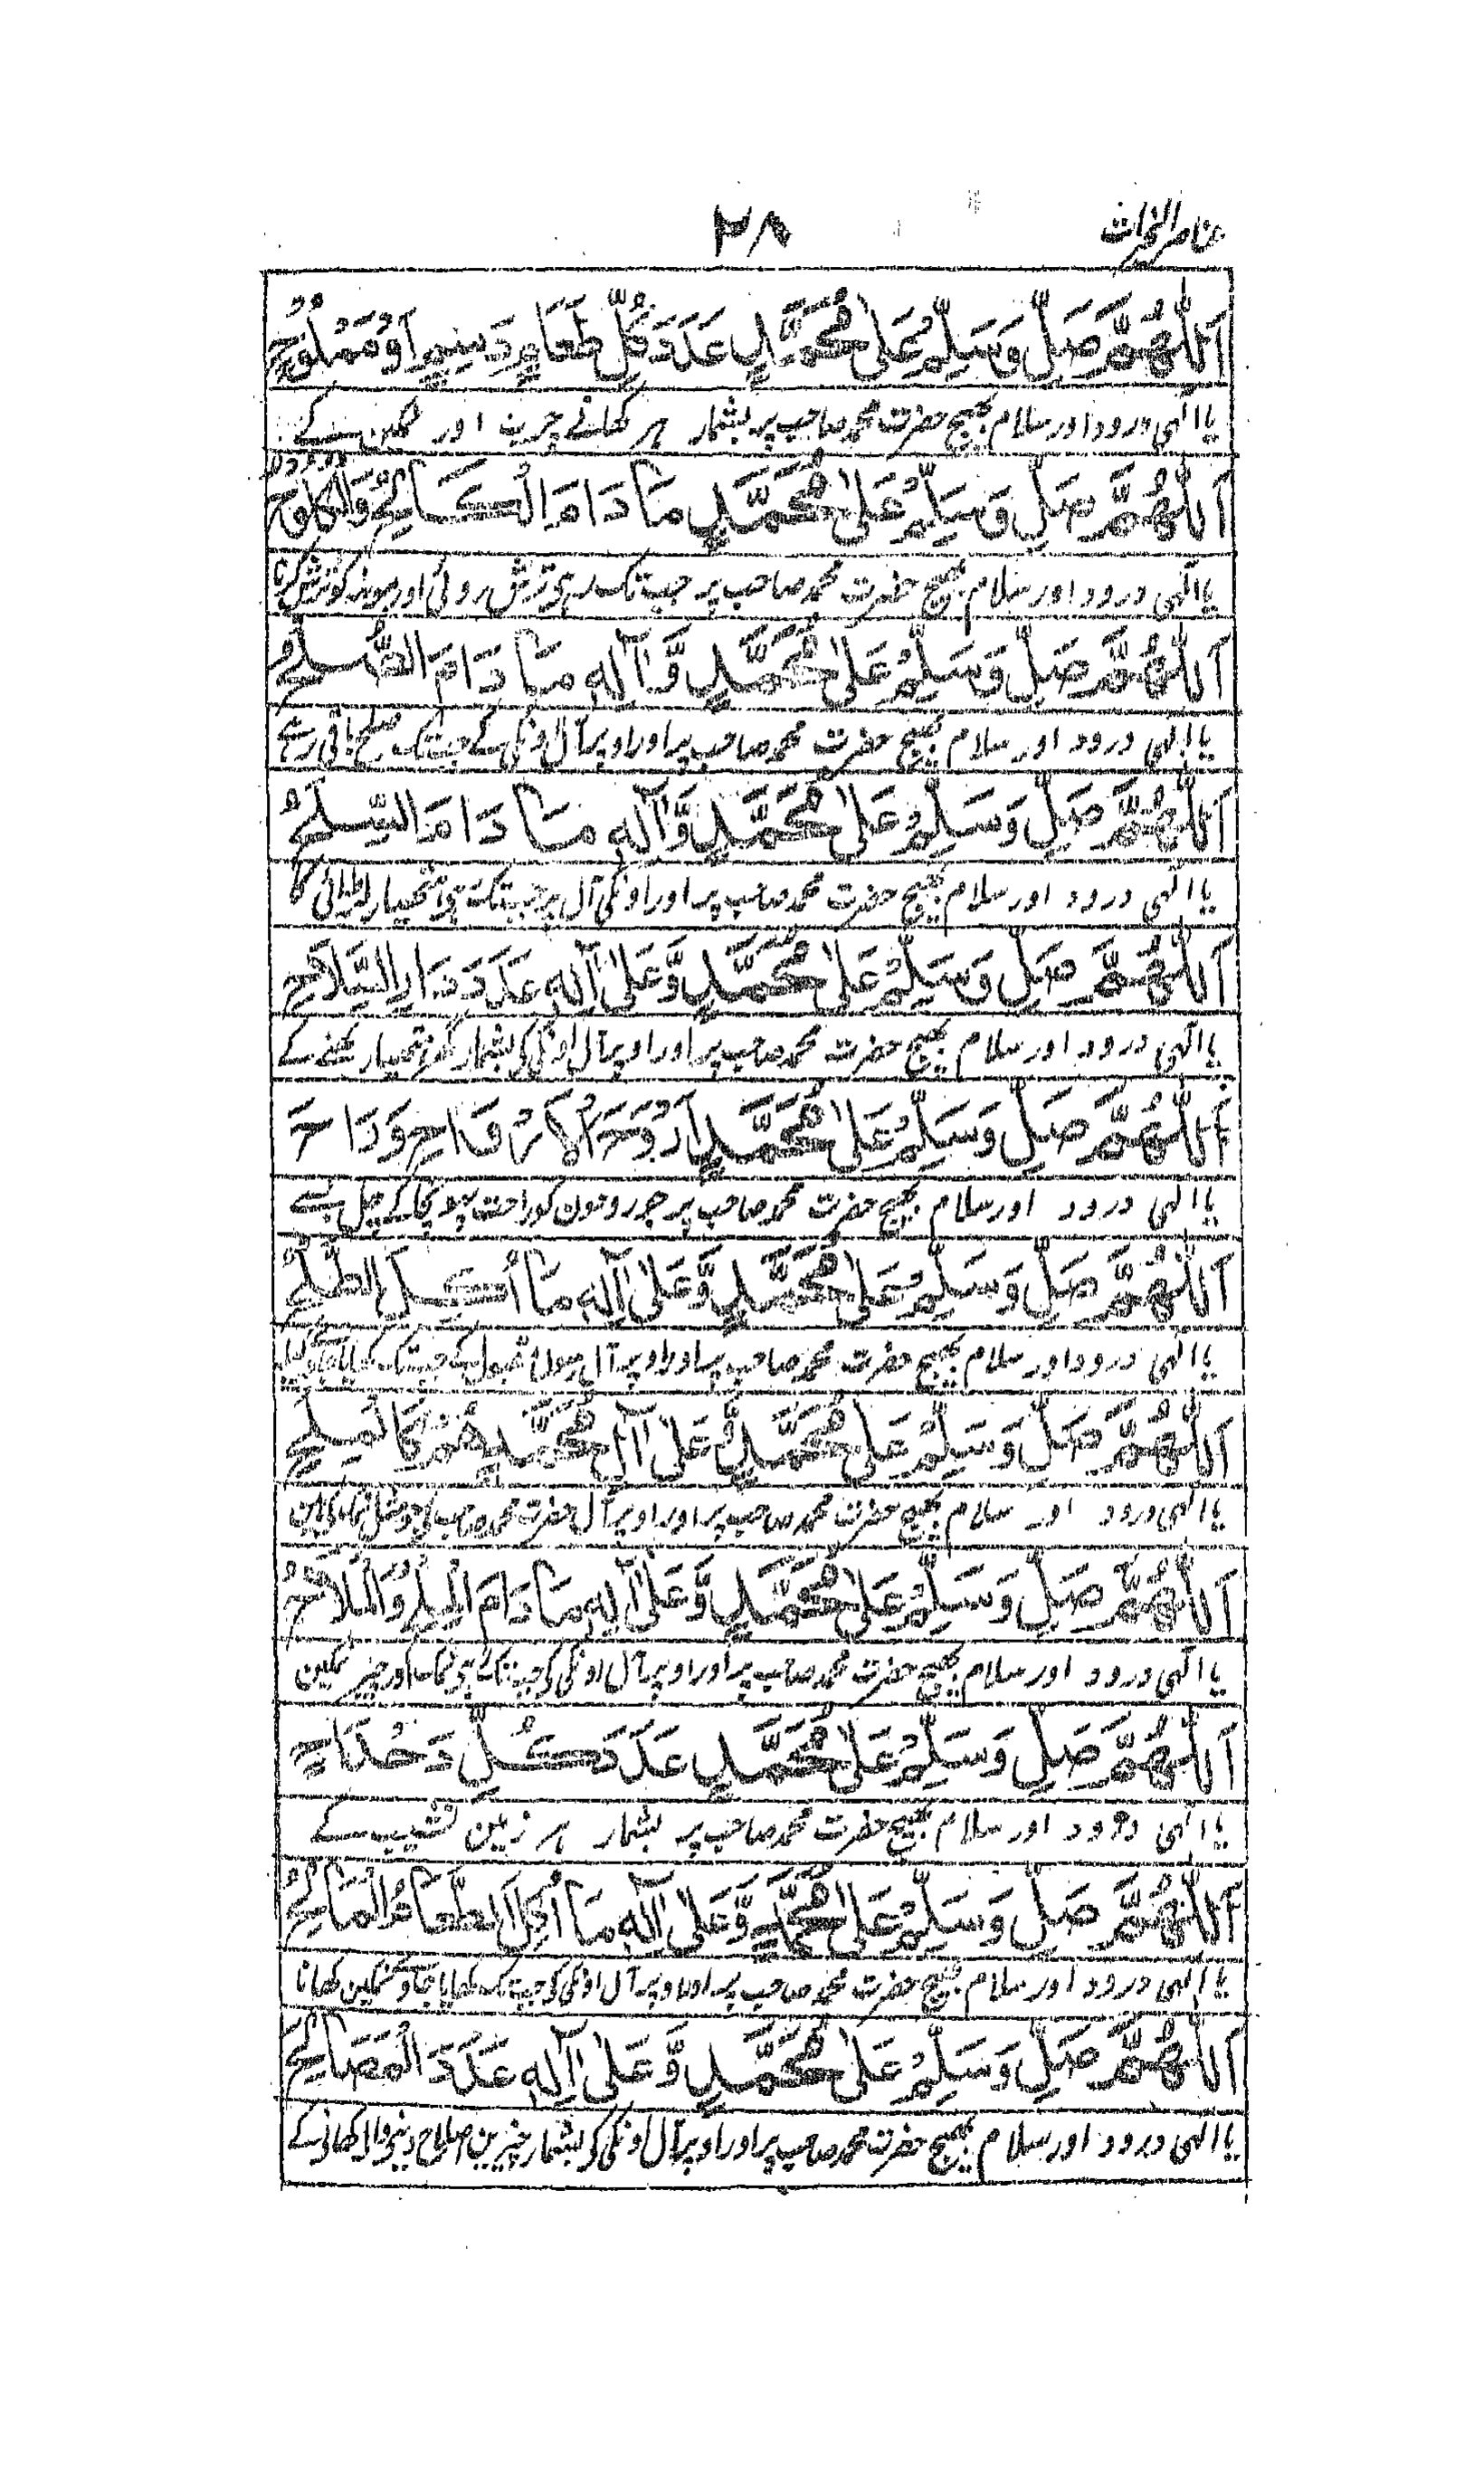 عناصر الخیرات
۲۸
اَللّٰهُمَّ صَلِّ وَسَلِّمْ عَلٰى مُحَمَّدٍ عَدَدَ كُلِّ طَعَامٍ دَسِيمٍ اَوْ مَمْلُوْحٍ
یا الٰہی درود اور سلام بھیج حضرت محمد صاحب پر بشمار ہر کھانے چرب اور نمکین کے
اَللّٰهُمَّ صَلِّ وَسَلِّمْ عَلٰى مُحَمَّدٍ مَا دَامَ الْكَالِحُ وَالْكُلُوْحُ
یا الٰہی درود اور سلام بھیج حضرت محمد صاحب پر جب تک رہے ترش روئی اور مونہہ کو ترش کرنا
اَللّٰهُمَّ صَلِّ وَسَلِّمْ عَلٰى مُحَمَّدٍ وَّاٰلِهٖ مَا دَامَ الصُّلْحُ
یا الٰہی درود اور سلام بھیج حضرت محمد صاحب پر اور اوپر آل اونکی کے جب تک صلح باقی رہے
اَللّٰهُمَّ صَلِّ وَسَلِّمْ عَلٰى مُحَمَّدٍ وَّاٰلِهٖ مَا دَامَ السِّلَحُ
یا الٰہی درود اور سلام بھیج حضرت محمد صاحب پر اور اونکی آل پر جب تک ہتھیار لڑائی کا
اَللّٰهُمَّ صَلِّ وَسَلِّمْ عَلٰى مُحَمَّدٍ وَّعَلٰى اٰلِهٖ عَدَدَ دَارِ السِّلَاحِ
یا الٰہی درود اور سلام بھیج حضرت محمد صاحب پر اور اوپر آل اونکی کی بشمار گھر ہتھیار رکھنے کے
اَللّٰهُمَّ صَلِّ وَسَلِّمْ عَلٰى مُحَمَّدٍ اَرْوَحَ الْاَرْوَاحِ وَرَاحَ
یا الٰہی درود اور سلام بھیج حضرت محمد صاحب پر جو روحون کو راحت پہونچا کے چل بسے
اَللّٰهُمَّ صَلِّ وَسَلِّمْ عَلٰى مُحَمَّدٍ وَّعَلٰى اٰلِهٖ مَا اُكِلَ الطَّلْحُ
یا الٰہی درود اور سلام بھیج حضرت محمد صاحب پر اور اوپر آل رسول مقبول کے جب تک کھایا جاوے کیلا
اَللّٰهُمَّ صَلِّ وَسَلِّمْ عَلٰى مُحَمَّدٍ وَّعَلٰى اٰلِ مُحَمَّدٍ هُمْ كَالْمِلْحِ
یا الٰہی درود اور سلام بھیج حضرت محمد صاحب پر اور اوپر آل حضرت محمد صاحب کی جو مثل نمک کی ہین
اَللّٰهُمَّ صَلِّ وَسَلِّمْ عَلٰى مُحَمَّدٍ وَّعَلٰى اٰلِهٖ مَا دَامَ الْمِلْحُ وَالْمَلَاحُ
یا الٰہی درود اور سلام بھیج حضرت محمد صاحب پر اور اوپر آل اونکی کی جب تک رہی نمک اور چیز نمکین
اَللّٰهُمَّ صَلِّ وَسَلِّمْ عَلٰى مُحَمَّدٍ عَدَدَ كُلِّ دَحْدَاحٍ
یا الٰہی درود اور سلام بھیج حضرت محمد صاحب پر بشمار ہر زمین نشیب کے
اَللّٰهُمَّ صَلِّ وَسَلِّمْ عَلٰى مُحَمَّدٍ وَّعَلٰى اٰلِهٖ مَا اُكِلَ الطَّعَامُ الْمَالِحُ
یا الٰہی درود اور سلام بھیج حضرت محمد صاحب پر اور اوپر آل اونکی کو جب تک کھایا جاوے نمکین کھانا
اَللّٰهُمَّ صَلِّ وَسَلِّمْ عَلٰى مُحَمَّدٍ وَّعَلٰى اٰلِهٖ عَدَدَ الْمَصَالِحِ
یا الٰہی درود اور سلام بھیج حضرت محمد صاحب پر اور اوپر آل اونکی کو بشمار چیزین اصلاح دینی والی کھانے کے